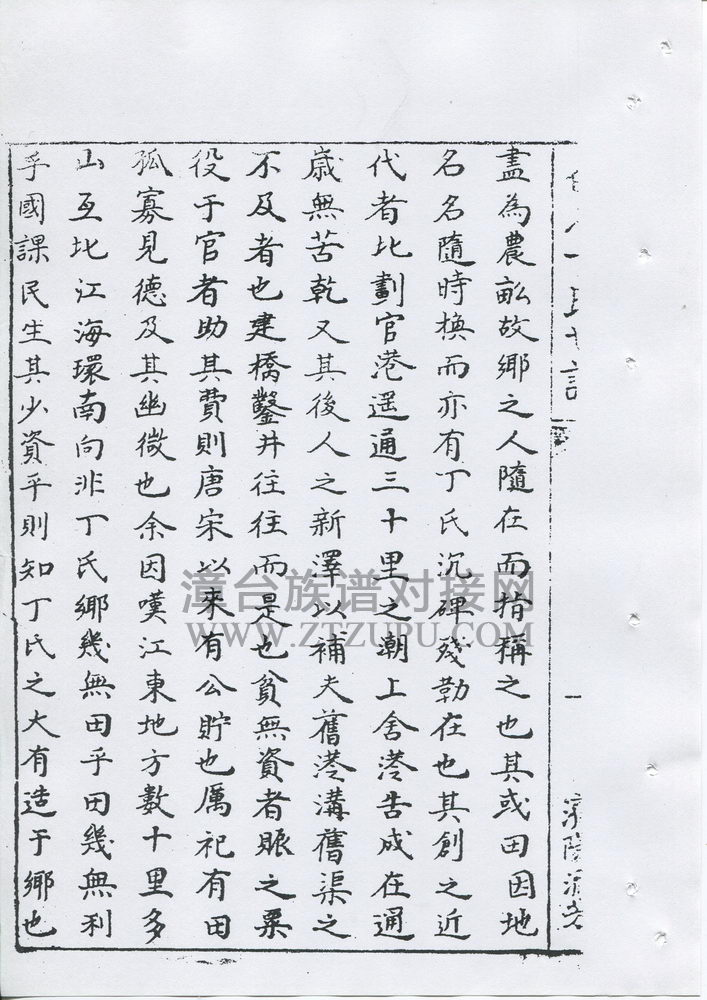 盡為農畝故鄉之人隨在而指稱之也其或田因地
名名隨時換而亦有丁氏沉碑殘勒在也其創之近
代者比劃官港遥通三十里之潮上舍港告成在通
歲無苦乾又其後人之新澤以補夫舊港溝舊渠之
不及者也建橋鑿井往往而是也貧無資者賑之粟
役于官者助其費則唐宋以來有公貯也厲祀有田
孤寡見德及其幽微也余因嘆江東地方數十里多
山亙圮江海環南向非丁氏鄉幾無田乎田幾無利
乎國課民生其少資乎則知丁氏之大有造于鄉也
一
漳台族谱对接网
WWW.ZTZUPU.COM